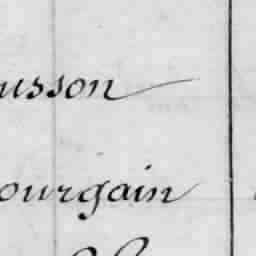 usson
ourgain